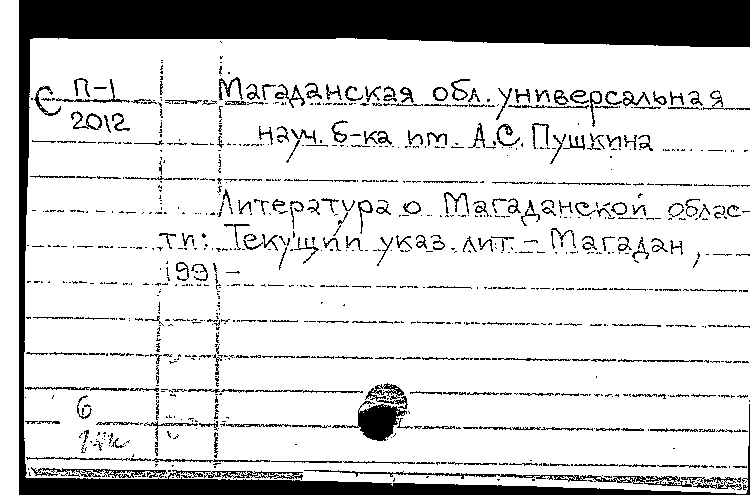 С П-1
2012
Магаданская обл. универсальная
науч. б-ка им. А.С. Пушкина
Литература о Магаданской облас-
ти: Текущий указ. лит. - Магадан,
1991 -
6